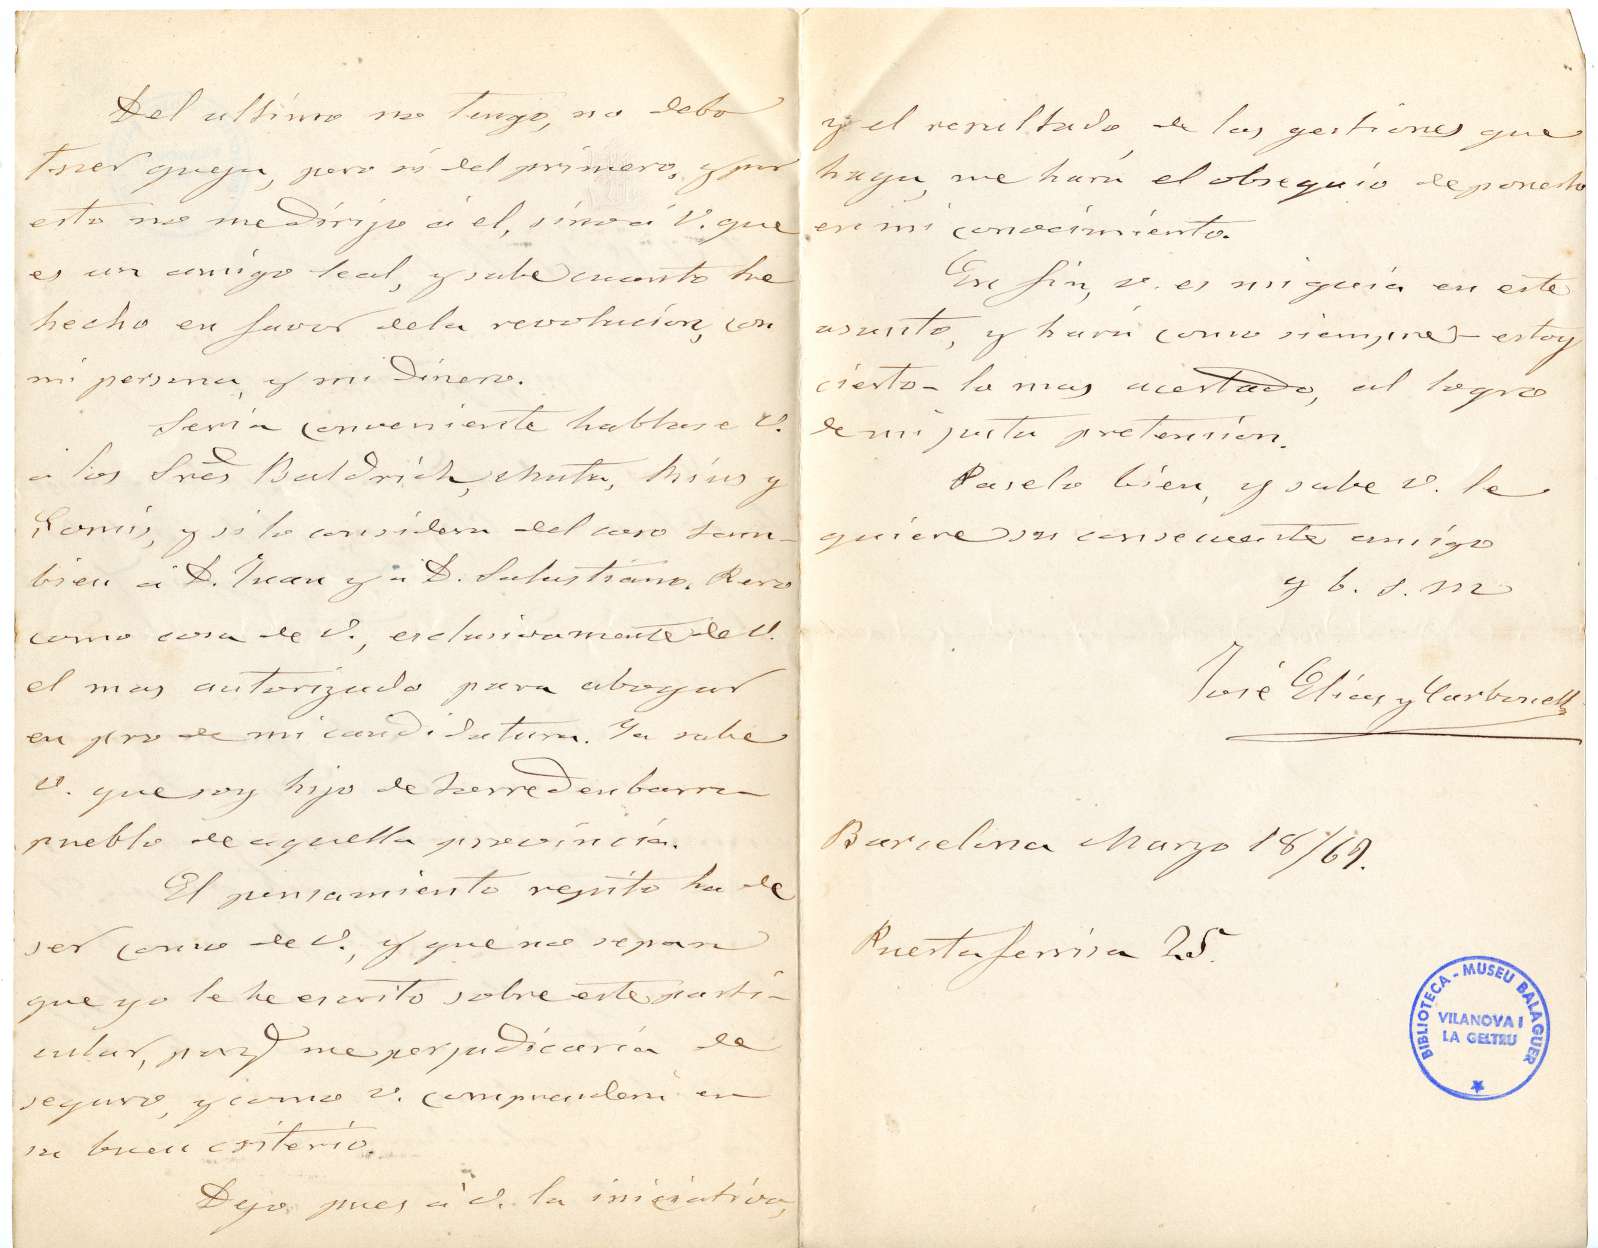 Del ultimo no tengo, no debo
tener queja, pero si del primero, y por
esto no me dirijo á el, sino á V. que
es un amigo leal, y sabe cuanto he
hecho en favor dela revolucion, con
mi persona, y mi dinero.
Seria conveniente hablase V.
a los Sres Baldrich, Mata, Rius y
Gomis, y si lo considera del caso tam-
bien á D. Juan y a D. Salustiano. Pero
como cosa de V., esclusivamente de V.
el mas autorizado para abogar
en pro de mi candidatura. Ya sabe
V. que soy hijo de Torredenbarra
pueblo de aquella provincia.
El pensamiento repito ha de
ser como de V., y que no sepan
que yo le he escrito sobre este parti-
cular, porq me perjudicaria de
seguro, y como V. comprenderá en
su buen criterio.
Dejo pues á V. la iniciativa,
y el resultado de las gestiones que
haga, me hará el obsequio de ponerlo
en mi conocimiento.
En fin, V. es mi guia en este
asunto, y hará como siempre - estoy
cierto - lo mas acertado, al logro
de mi justa pretension.
Paselo bien, y sabe V. le
quiere su consecuente amigo
y b. s. m
José Elias y Carbonell
Barcelona Marzo 18/69.
Puertaferrisa 25.
BIBLIOTECA - MUSEU BALAGUER
VILANOVA I
LA GELTRU